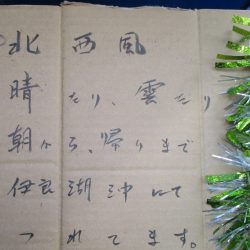 北西風
晴たり、雲たり
朝から、帰りまで
伊良湖沖にて
つれてます。